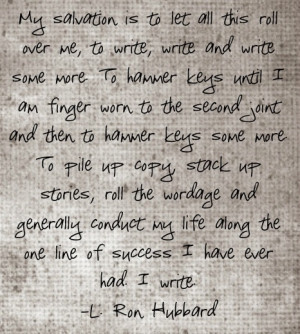 My salvation is to let all this roll
over me, to write, write and write
some more. To hammer keys until I
am finger worn to the second joint
and then to hammer keys some more.
To pile up copy, stack up
stories, roll the wordage and
generally conduct my life along the
one line of success I have ever
had. I write.
-L. Ron Hubbard